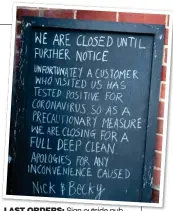 WE ARE CLOSED UNTIL
FURTHER NOTICE
UNFORTUNATEY A CUSTOMER
WHO VISITED US HAS
TESTED POSITIVE FOR
CORONAVIRUS SO AS A
PRECAUTIONARY MEASURE
WE ARE CLOSING FOR A
FULL DEEP CLEAN.
APOLOGIES FOR ANY
INCONVENIENCE CAUSED
Nick & Becky
LAST ORDERS: Sign outside pub